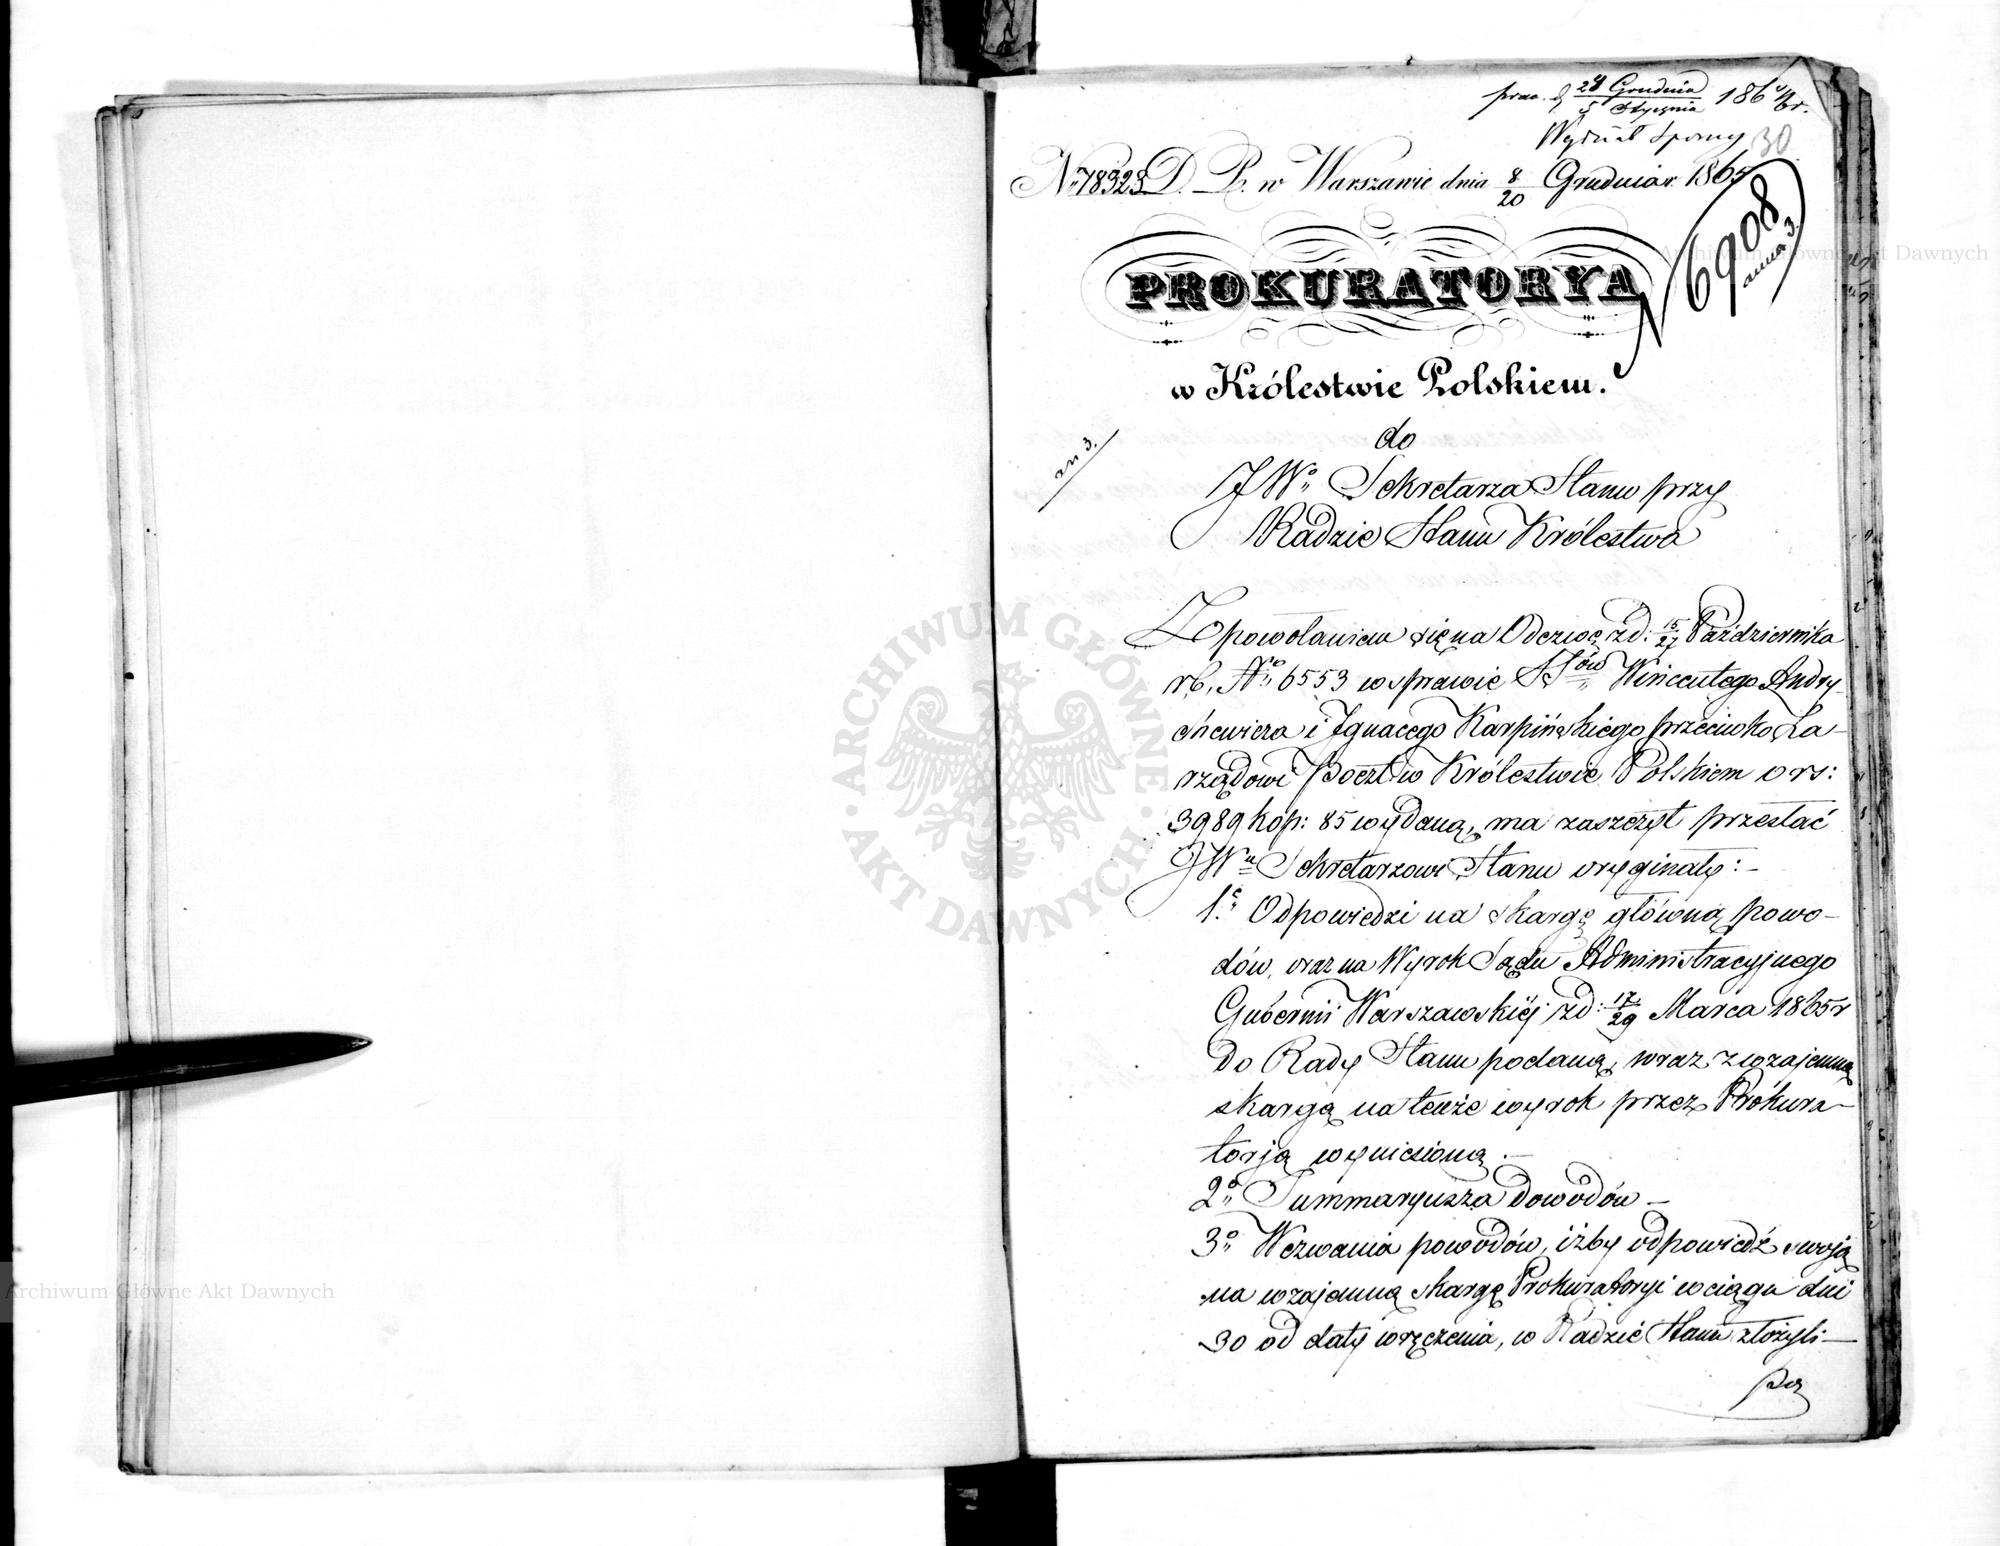 prez. d. 24 Grudnia / 5 Stycznia 1865/6 r.
Wydział Sporny 30
No 78323 D. P. w Warszawie dnia 8/20 Grudnia r. 1865
N 6908
annex 3.
PROKURATORYA
w Królestwie Polskiem.
an 3.
do
JWo Sekretarza Stanu przy
Radzie Stanu Królestwa
Z powołaniem się na Odezwę z d: 15/27 Października
r.b. No 6553 w sprawie SSów Wincentego Andry-
chewicza i Ignacego Karpińskiego przeciwko Za-
rządowi Poczt w Królestwie Polskiem o rs:
3989 kop: 85 wydaną, ma zaszczyt przesłać
JWu Sekretarzowi Stanu oryginały:-
1.e Odpowiedzi na skargę główną powo-
dów, oraz na Wyrok Sądu Administracyjnego
Gubernii Warszawskiéj z d: 17/29 Marca 1865 r
do Rady Stanu podaną, wraz z wzajemną
skargą na tenże wyrok przez Prokura-
torją wyniesioną.-
2o Summaryusza dowodów-
3o Wezwania powodów, iżby odpowiedź swoją
na wzajemną skargę Prokuratoryi w ciągu dni
30 od daty wręczenia, w Radzie Stanu złożyli-
Archiwum Główne Akt Dawnych
Archiwum Główne Akt Dawnych
ARCHIWUM GŁÓWNE · AKT DAWNYCH ·